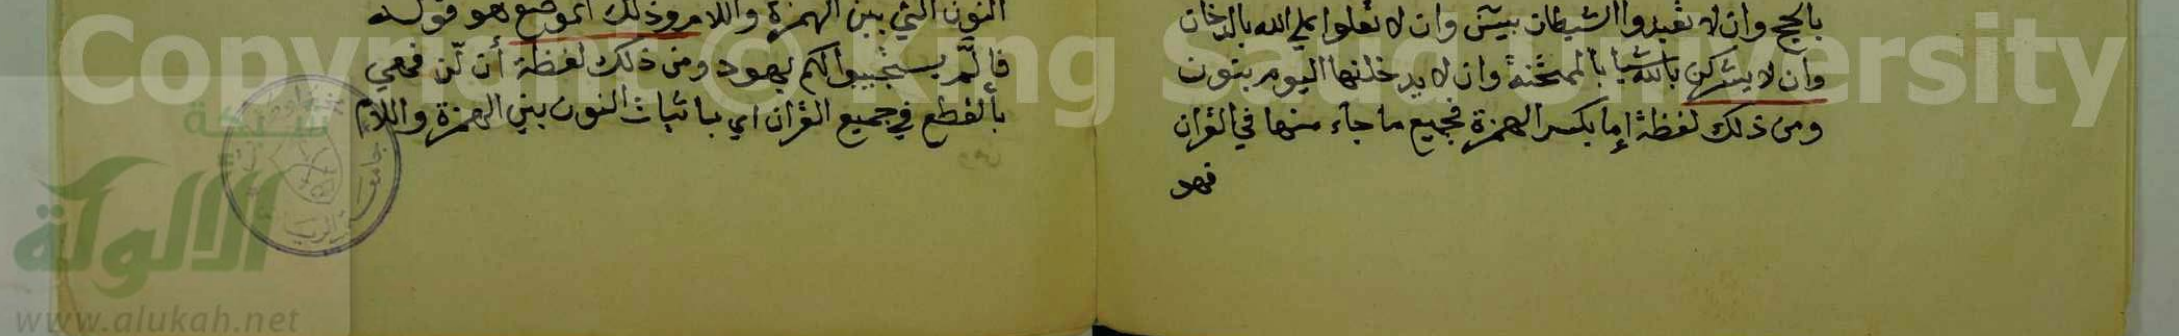 بالحج وان لا تعبدوا الشيطان بيسن وان لا تعلوا على الله بالدخان
وان لا يشركن بالله شيا بالممتحنة وان لا يدخلنها اليوم بنون
ومن ذلك لفظة إما بكسر الهمزة فجميع ما جاء منها في القرآن
فهو
النون التي بين الهمزة واللام وذلك الموضع هو قوله
فإلّم يستجيبوا لكم بهود ومن ذلك لفظة أن لّن فهي
بالقطع في جميع القرآن اي باثبات النون بين الهمزة واللام
Copyright © King Saud University
شبكة
الألوكة
www.alukah.net